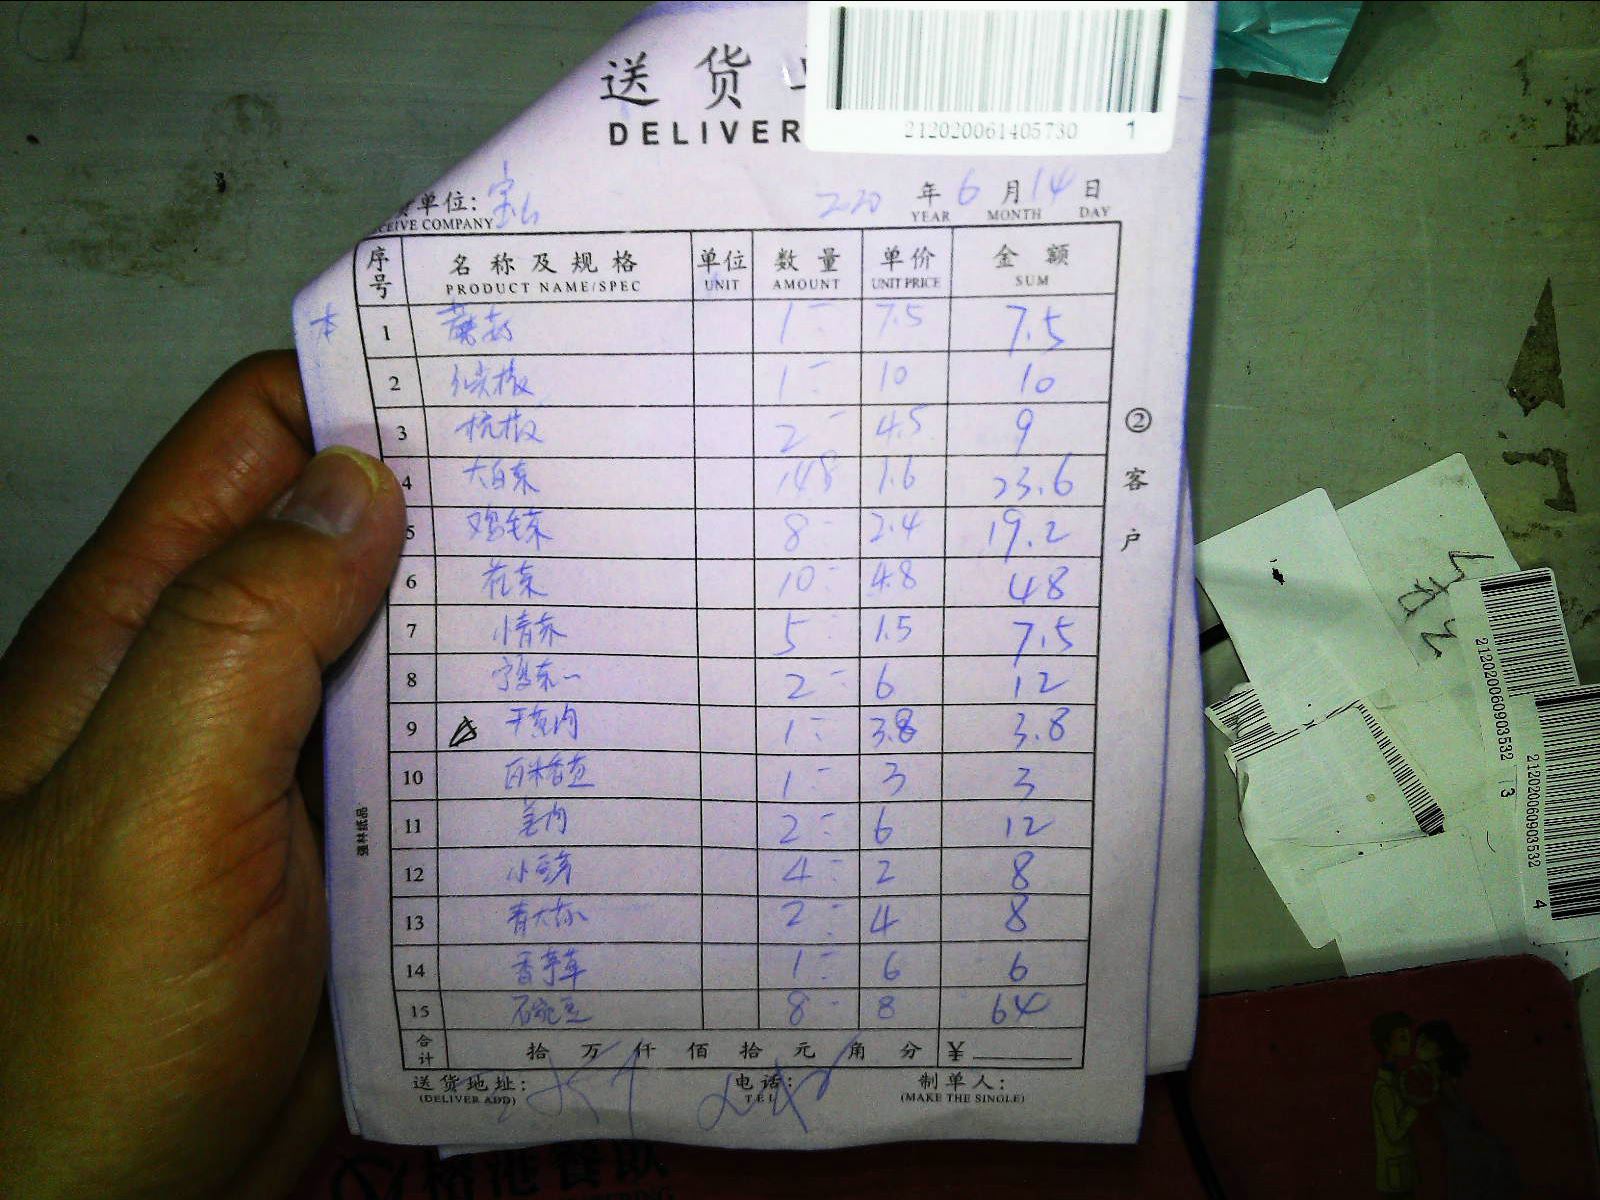 送 货
DELIVER
212020061405730 1
单位: 宝山 2020 年 6 月 14 日
CEIVE COMPANY YEAR MONTH DAY
序号 名称及规格 单位 数量 单价 金额
PRODUCT NAME/SPEC UNIT AMOUNT UNIT PRICE SUM
本 1 蘑菇 1 7.5 7.5
2 尖椒 1 10 10
3 杭椒 2 4.5 9
4 大白菜 148 1.6 23.6
5 鸡毛菜 8 2.4 19.2
6 花菜 10 4.8 48
7 小青菜 5 1.5 7.5
8 2 6 12
9 1 3.8 3.8
10 1 3 3
11 姜肉 2 6 12
12 小豆芽 4 2 8
13 青大 2 4 8
14 香茅草 1 6 6
15 豆 8 8 64
合计 拾 万 仟 佰 拾 元 角 分 ¥
送货地址: 电话: 制单人:
(DELIVER ADD) TEL (MAKE THE SINGLE)
② 客户
强林纸品
212020060903532 3
212020060903532 4